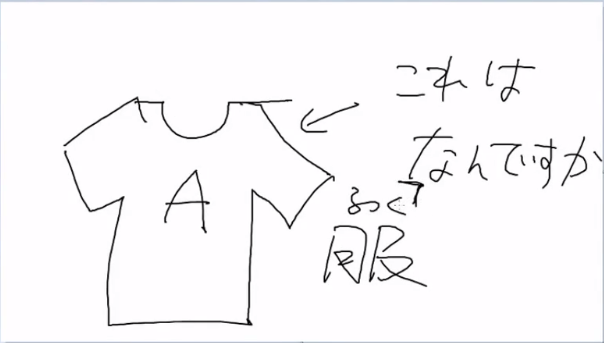 これは
なんですか
A
ふく
服